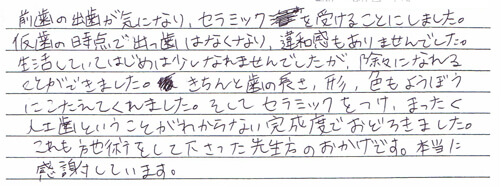 前歯の出歯が気になり、セラミックを受けることにしました。
仮歯の時点で出っ歯はなくなり、違和感もありませんでした。
生活していてはじめは少しなれませんでしたが、除々になれる
ことができました。きちんと歯の長さ、形、色もようぼう
にこたえてくれました。そしてセラミックをつけ、まったく
人工歯ということがわからない完成度でおどろきました。
これも施術をして下さった先生方のおかげです。本当に
感謝しています。